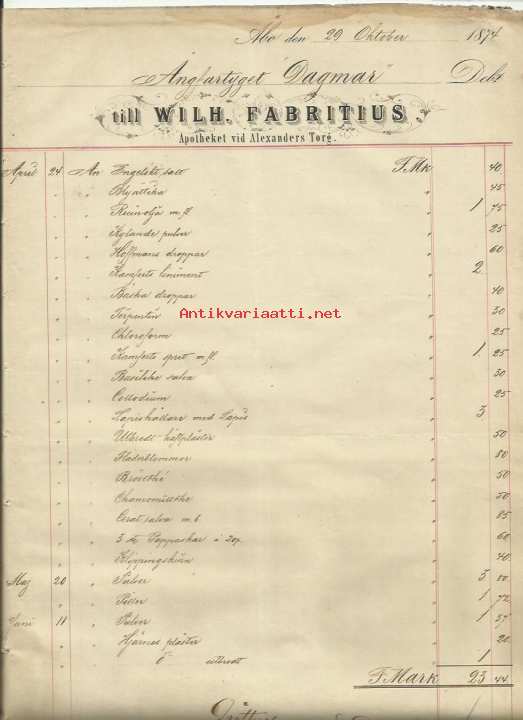 Åbo den 29 Oktober 1874
Ångfartyget "Dagmar" Debt
till WILH. FABRITIUS
Apotheket vid Alexanders Torg.
April 24 An Engelskt salt FMk 40
" " Brysättika " 45
" " Ricinolja m. fl. " 1 75
" " Kylande pulver " 25
" " Hoffmans droppar " 60
" " Kamferts liniment " 2
" " Baska droppar " 40
" " Terpentin " 30
" " Chloroform " 25
" " Kamferts sprit m. fl. " 1 25
" " Basilike salva " 30
" " Collodium " 25
" " Lapishållare med Lapis " 3
" " Utbredt häftplåster " 50
" " Fläderblommor " 80
" " Bröstthé " 50
" " Chamomillthe " 50
" " Cerat salva m. b. " 85
" " 3 st Pappaskar à 20 p. " 60
" " " 40
Maj 20 " Pulver " 3 80
" " Piller " 1 72
Juni 11 " Pulver " 1 37
" " Hjärnes plåster " 20
" " D:o utbredt 1
F.Mark 23 44
Antikvariaatti.net